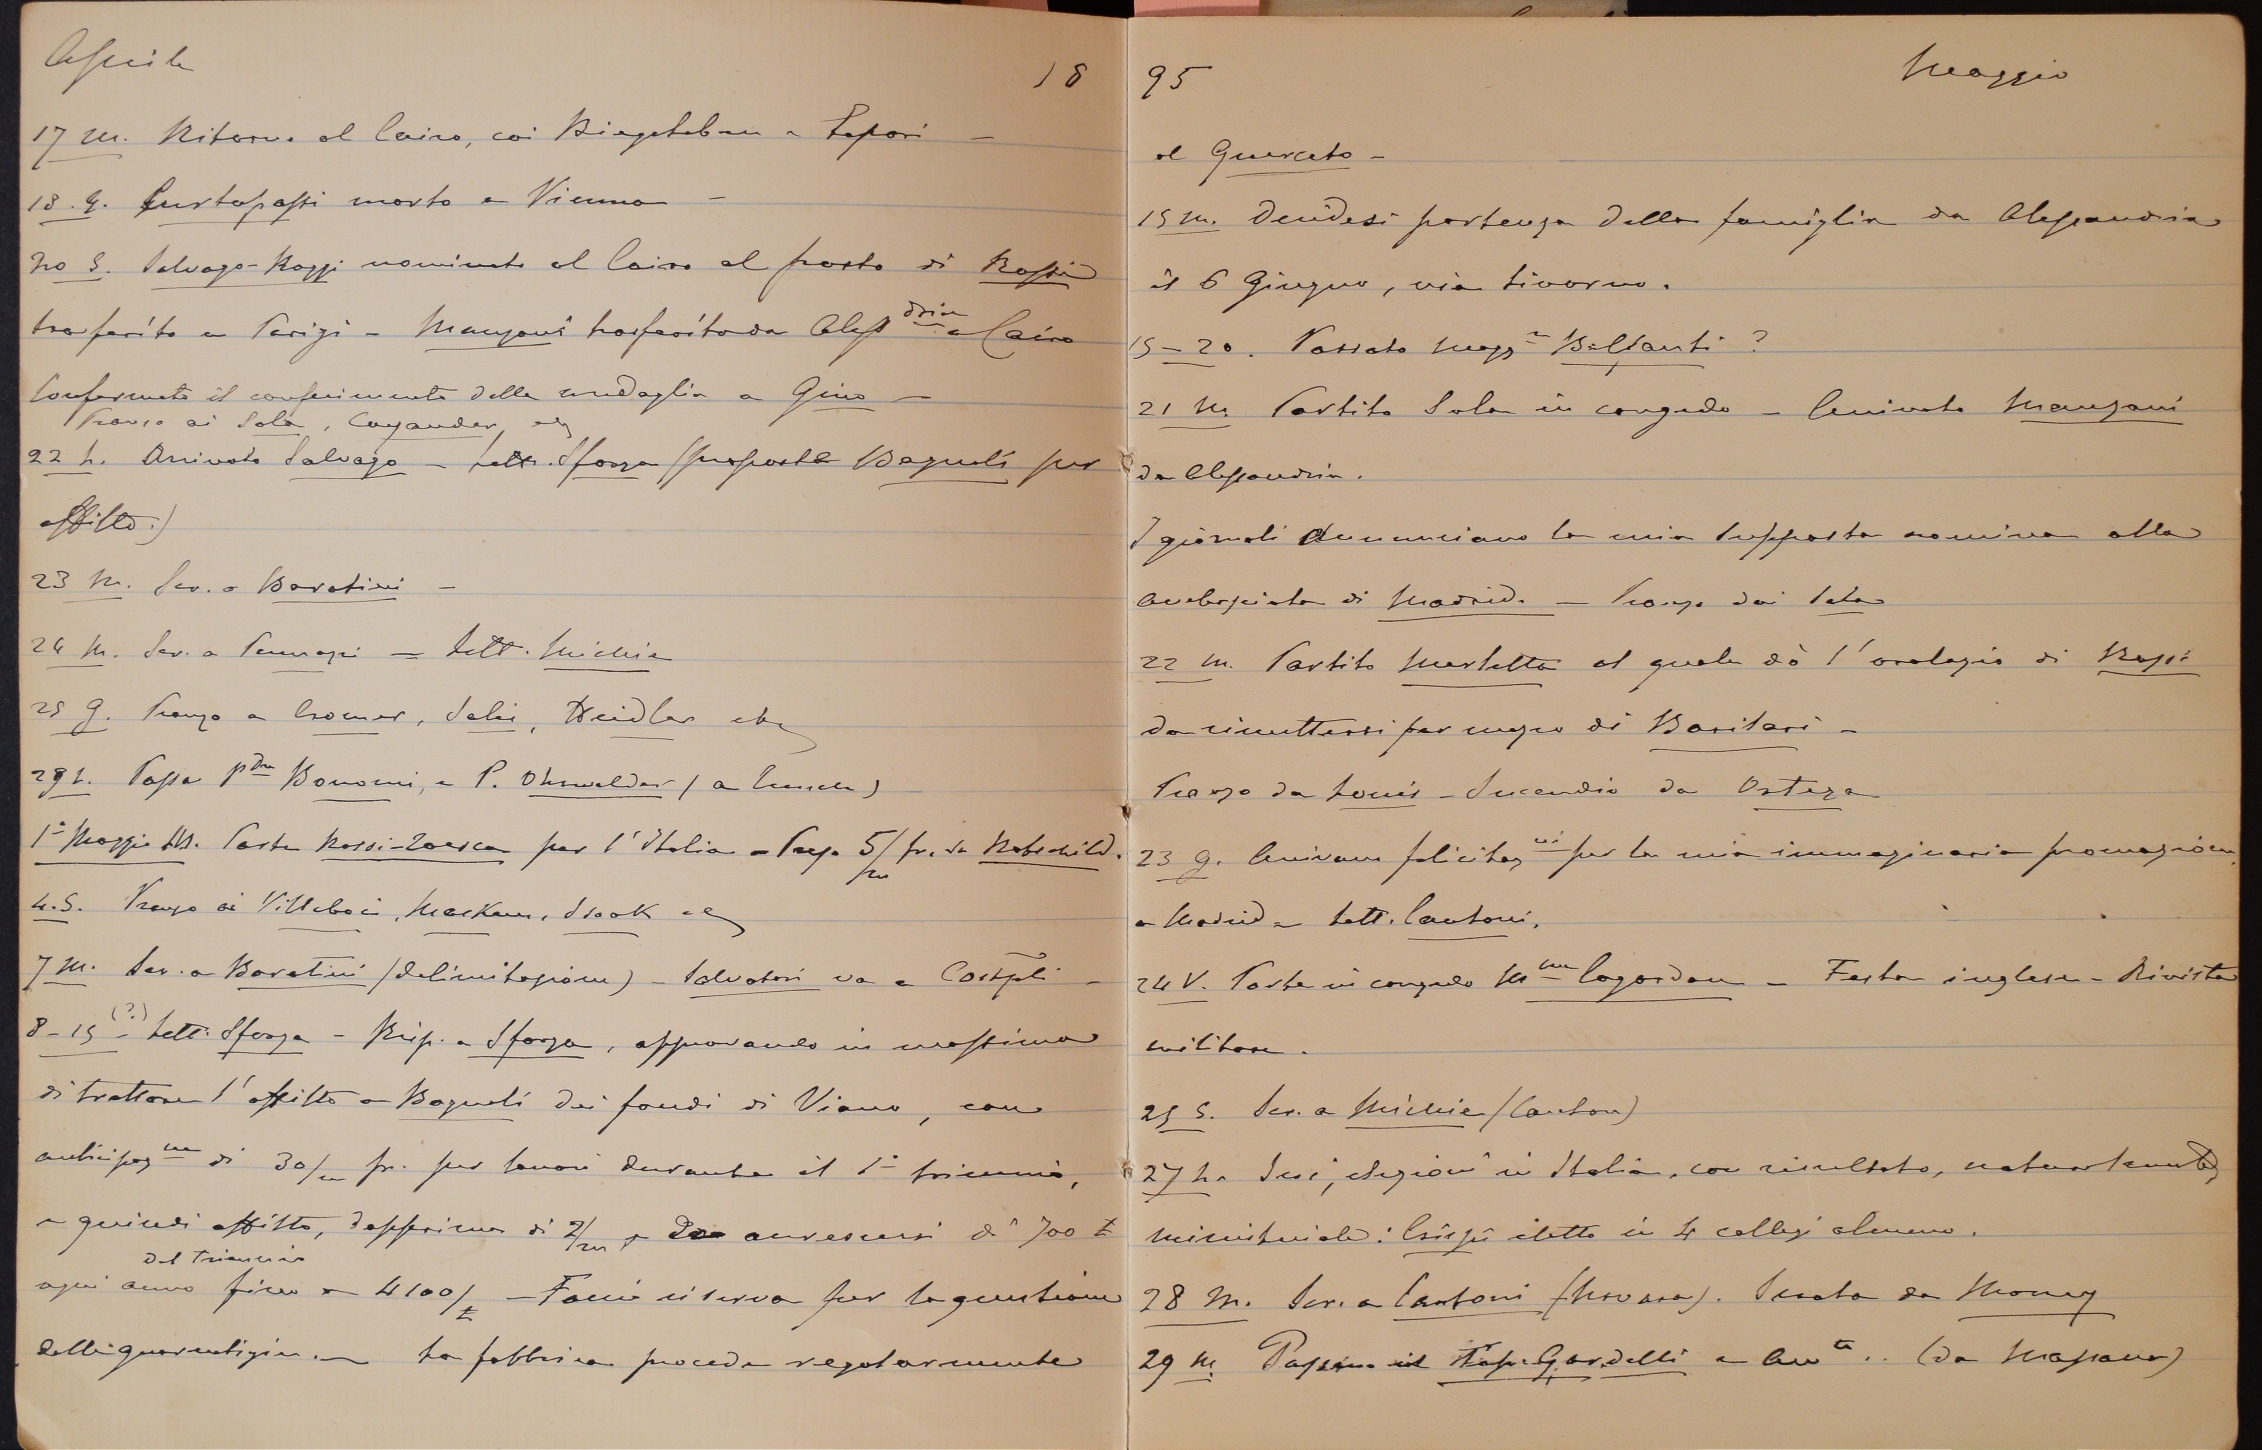 Aprile 18
17 M. Ritorno al Cairo, coi Riegeleben e Lepori —
18. G. Curtopassi morto a Vienna —
20 S. Salvago-Raggi nominato al Cairo al posto di Rossi
trasferito a Parigi — Manzoni trasferito da Aless dria a Cairo
Confermato il conferimento della medaglia a Gino —
Pranzo ai Sola,
22 L. Arrivato Salvago — Lett. Sforza (proposta Bagnoli per
affitto.)
23 M. Scr. a Baratieri —
24 M. Scr. a — Lett. Michie
25 G. Pranzo a Cromer, Heidler etc
29 L. Passa Bonomi, e P. Ohrwalder (a lunch)
1° Maggio M. Parte Rossi-Zoesca per l'Italia — 5/m fr. da Rotschild.
4. S. Pranzo ai Villebois,
7 M. Scr. a Baratieri (delimitazione) — Salvatori va a Costpli —
8-15 (?) — Lett. Sforza — Risp. a Sforza, approvando in massima
di trattare l'affitto a Bagnoli dei fondi di Viano, con
anticipaz ne di 30/m fr. per lavori durante il 1° triennio,
e quindi affitto, dapprima di 2/m, accrescersi di 700 £
del triennio
ogni anno fino a 4100/£ — Faccio riserva per la questione
della guarentigia. — La fabbrica procede regolarmente
95 Maggio
al Querceto —
15 M. Decidesi partenza della famiglia da Alessandria
il 6 Giugno, via Livorno.
15-20. Passato Magg e Belfanti?
21 M. Partito Sola in congedo — Arrivato Manzoni
da Alessandria.
I giornali annunciano la mia supposta nomina alla
Ambasciata di Madrid. — Pranzo dai Sola
22 M. Partito Marletta al quale dò l'orologio di Rossi
da rimettersi per mezzo di Basilari —
Pranzo da Louis — Incendio da Ortega
23 G. Arrivano felicitaz ni per la mia immaginaria promozione
a Madrid — Lett. Cantoni.
24 V. Parte in congedo M me Cogordan — Festa inglese — Rivista
militare.
25 S. Scr. a Michie (Canton)
27 L. Ieri, elezioni in Italia, con risultato, naturalmente,
ministeriale: Crispi eletto in 4 collegi almeno.
28 M. Scr. a Cantoni (Novara). Serata da Money
29 M. Gardelli e (da Massaua)